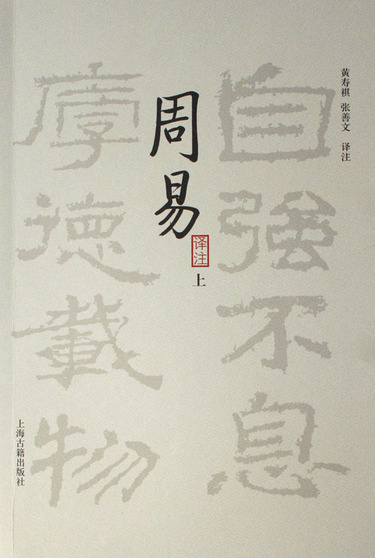 周易
译注
上
黄寿祺 张善文 译注
自强不息
厚德载物
上海古籍出版社